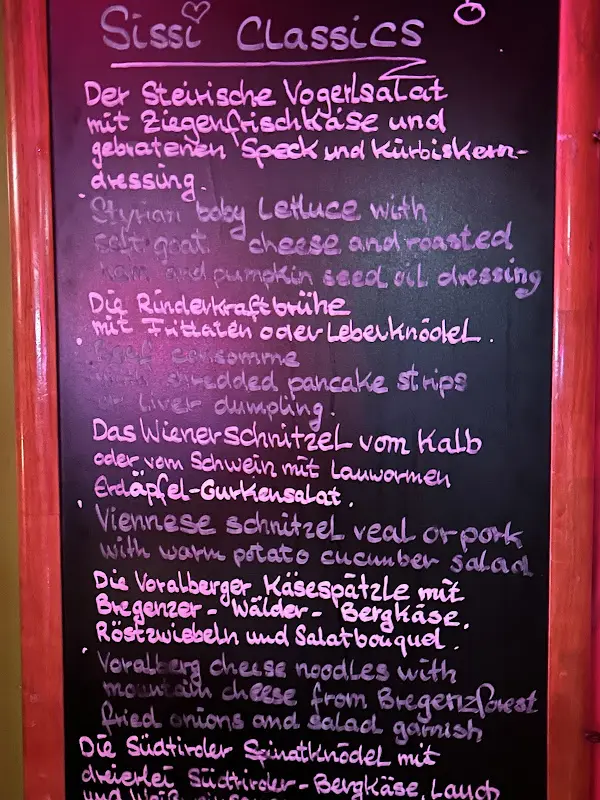 Sissi Classics
Der Steirische Vogerlsalat
mit Ziegenfrischkäse und
gebratenen Speck und Kürbiskern-
dressing.
Styrian baby Lettuce with
goat cheese and roasted
ham and pumpkin seed oil dressing
Die Rinderkraftbrühe
mit Frittaten oder Leberknödel.
Beef consomme
with shredded pancake strips
or liver dumpling.
Das Wienerschnitzel vom Kalb
oder vom Schwein mit Lauwarmen
Erdäpfel-Gurkensalat.
Viennese schnitzel veal or pork
with warm potato cucumber salad
Die Voralberger Käsespätzle mit
Bregenzer-Wälder-Bergkäse.
Röstzwiebeln und Salatbouquet.
Voralberg cheese noodles with
mountain cheese from Bregenzforest
fried onions and salad garnish
Die Südtiroler Spinatknödel mit
dreierlei Südtiroler-Bergkäse, Lauch
und